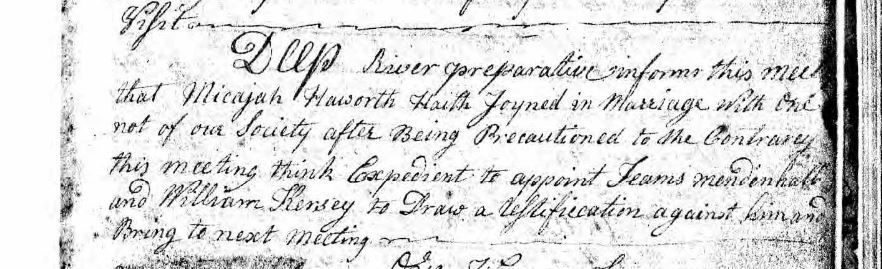 Visit
Deep River preparative informs this meet
that Micajah Haworth Haith Joyned in Marriage with one
not of our Society after Being Precautioned to the Contrarey
this meeting think Expedient to appoint Jeams mendenhall
and William Kersey to Draw a Testification against him and
Bring to next meeting